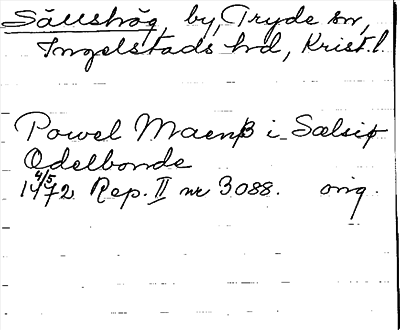 Sällshög, by, Tryde sn,
Ingelstads hd, Krist.l.
Powel Maenβ i Sælsiø
Odelbonde
14 4/5 72 Rep. II nr 3088. orig.